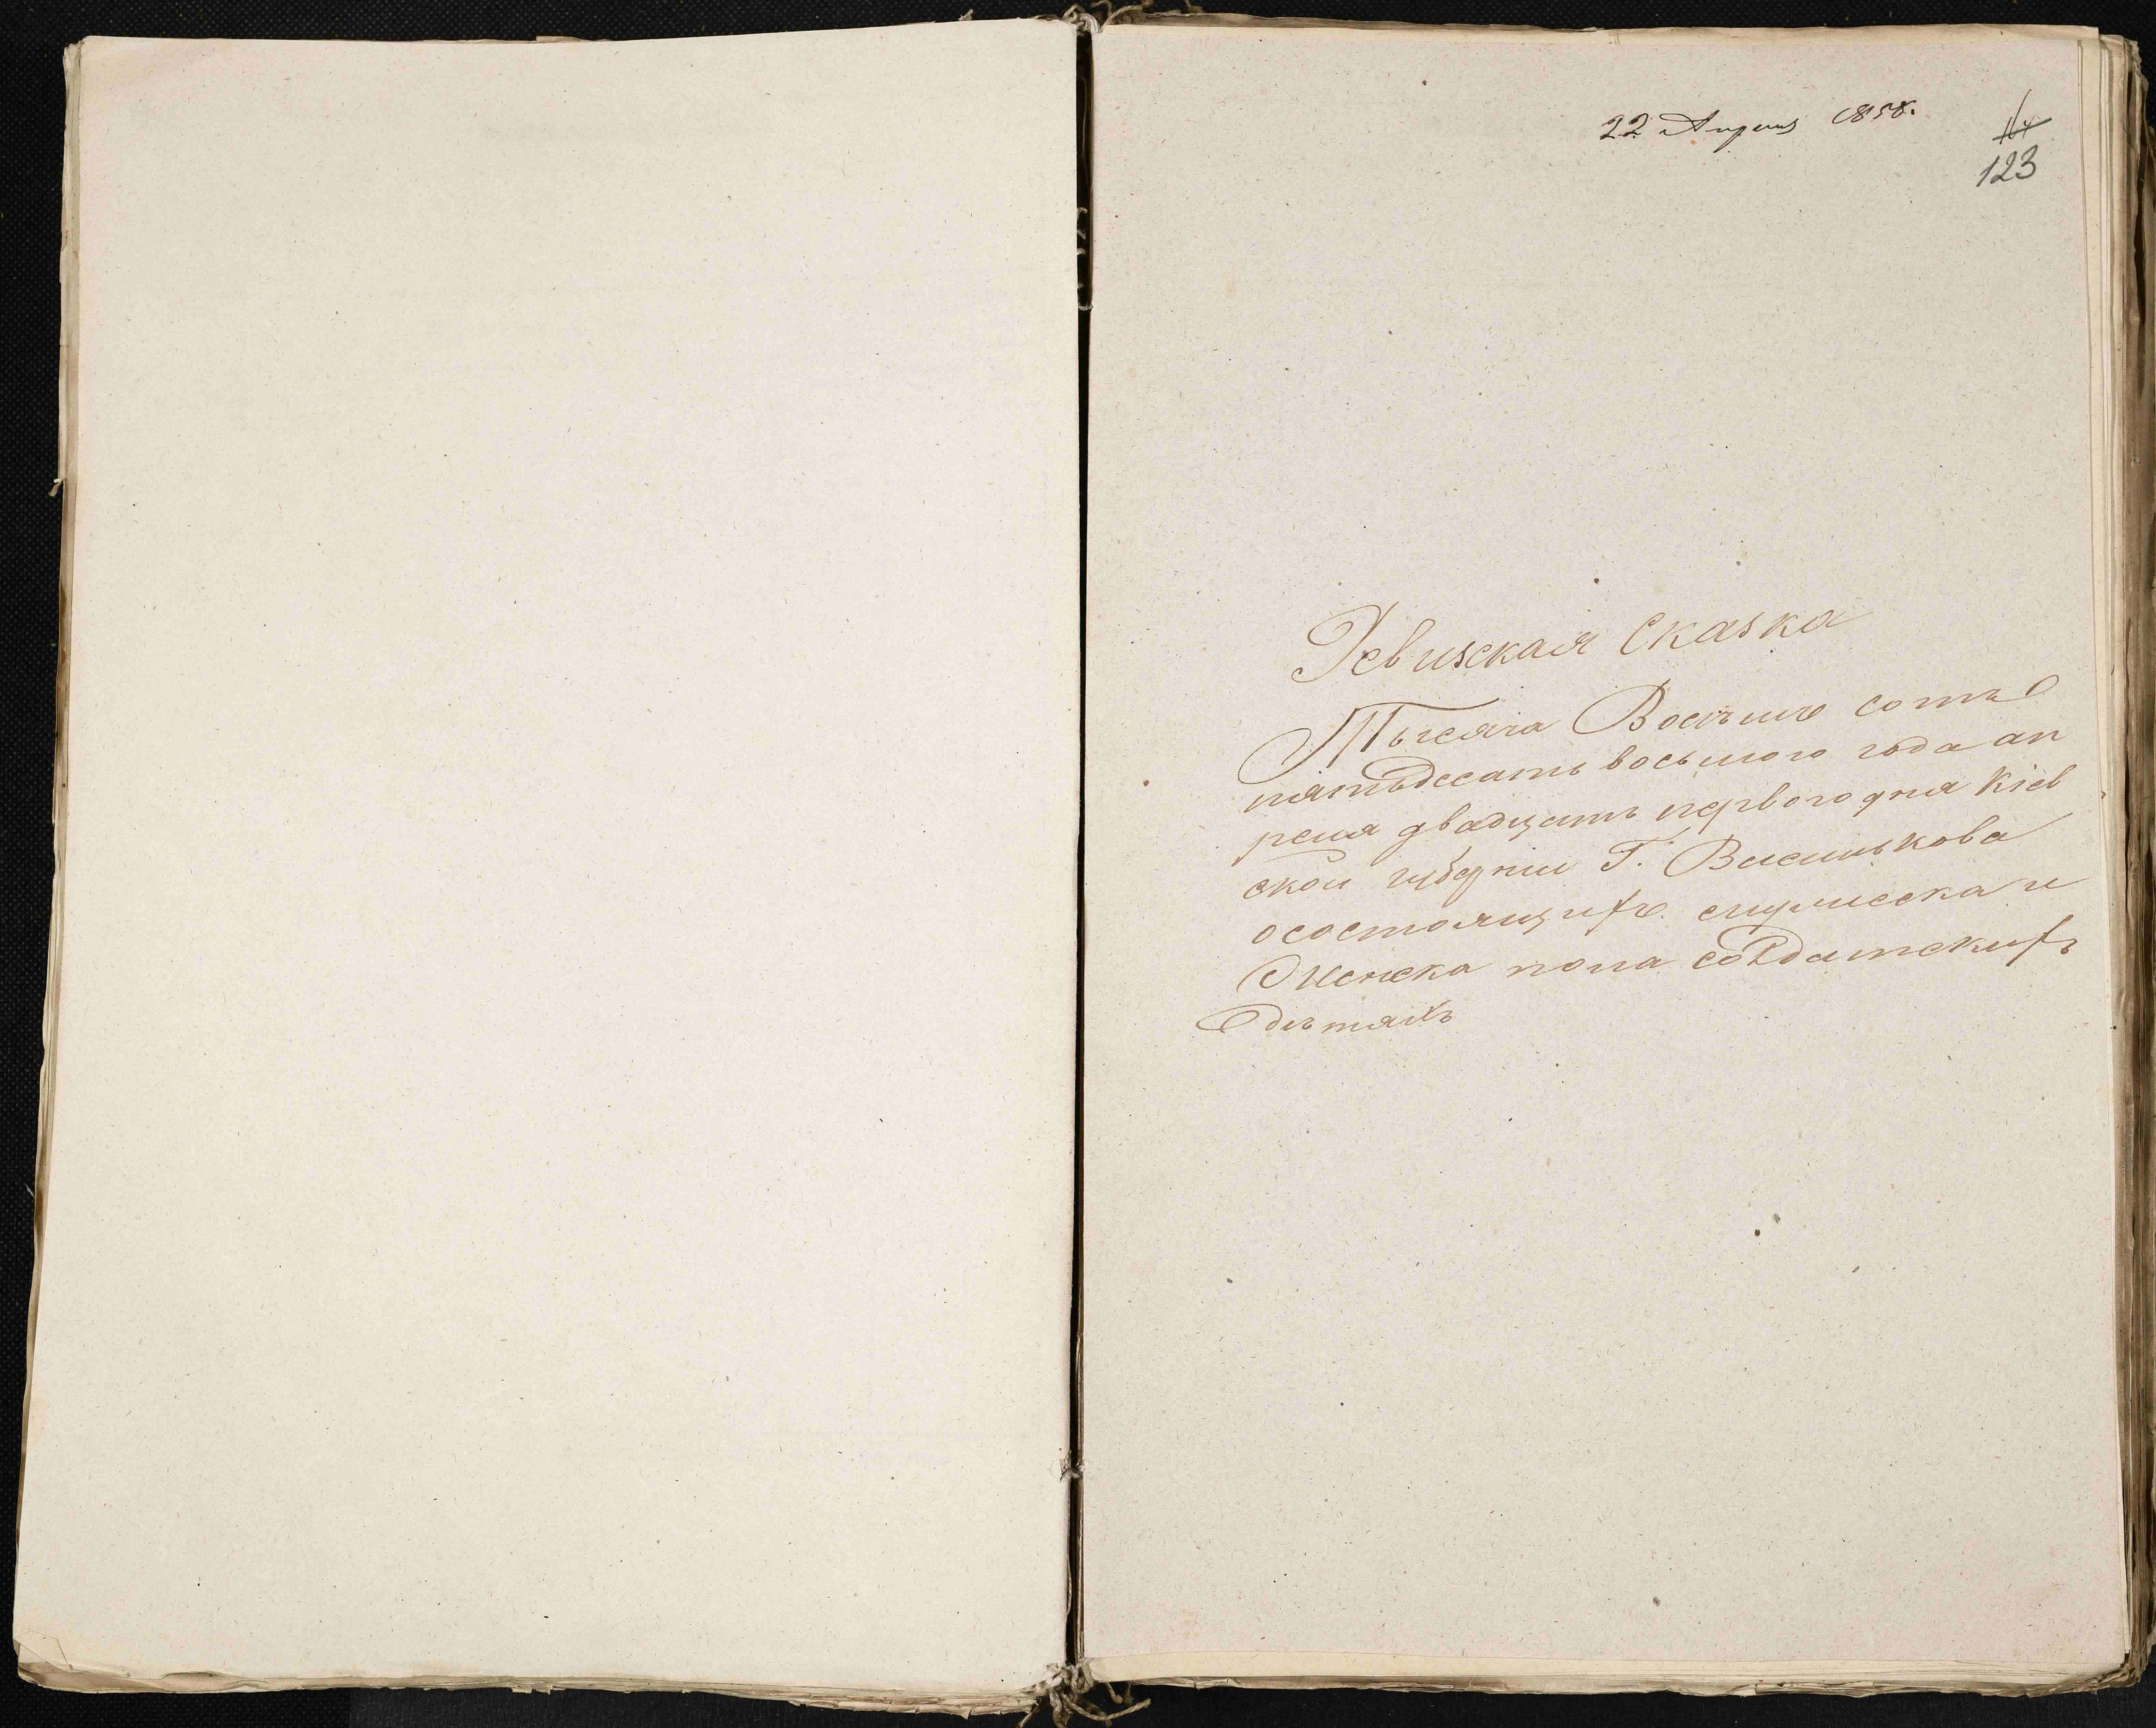 22 Апреля 1858.
123
Ревизская Сказка
Тысяча Восемь сотъ
пятьдесятъ восьмого года ап
реля двадцать первого дня Кіев
ской губерніи Г. Василькова
осостоящихъ мужеска и
Женска пола солдатскихъ
детяхъ